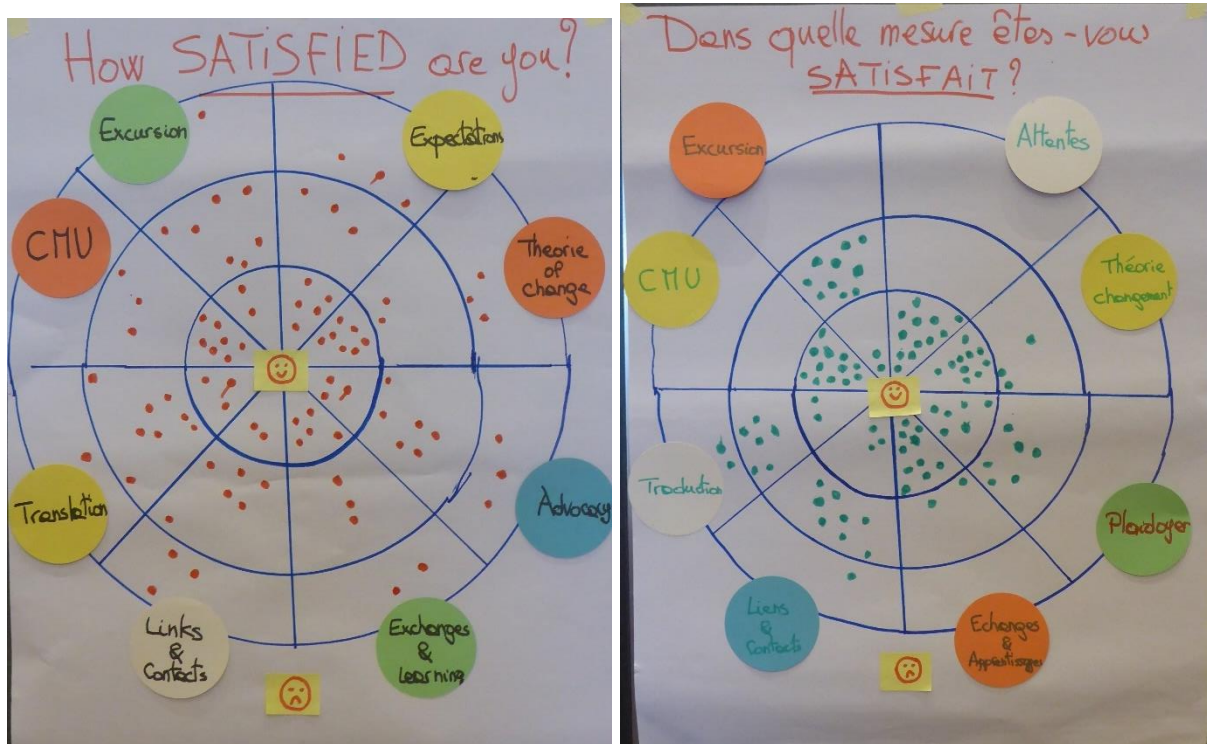 How SATiSFiED are you?
Excursion
Expectations
CMU
Theorie
of
change
Translation
Advocacy
Links
&
Contacts
Exchanges
&
Learning
Dans quelle mesure êtes-vous
SATiSFAiT?
Excursion
Attentes
CMU
Théorie
changement
Traduction
Plaidoyer
Liens
&
Contacts
Echanges
&
Apprentissages